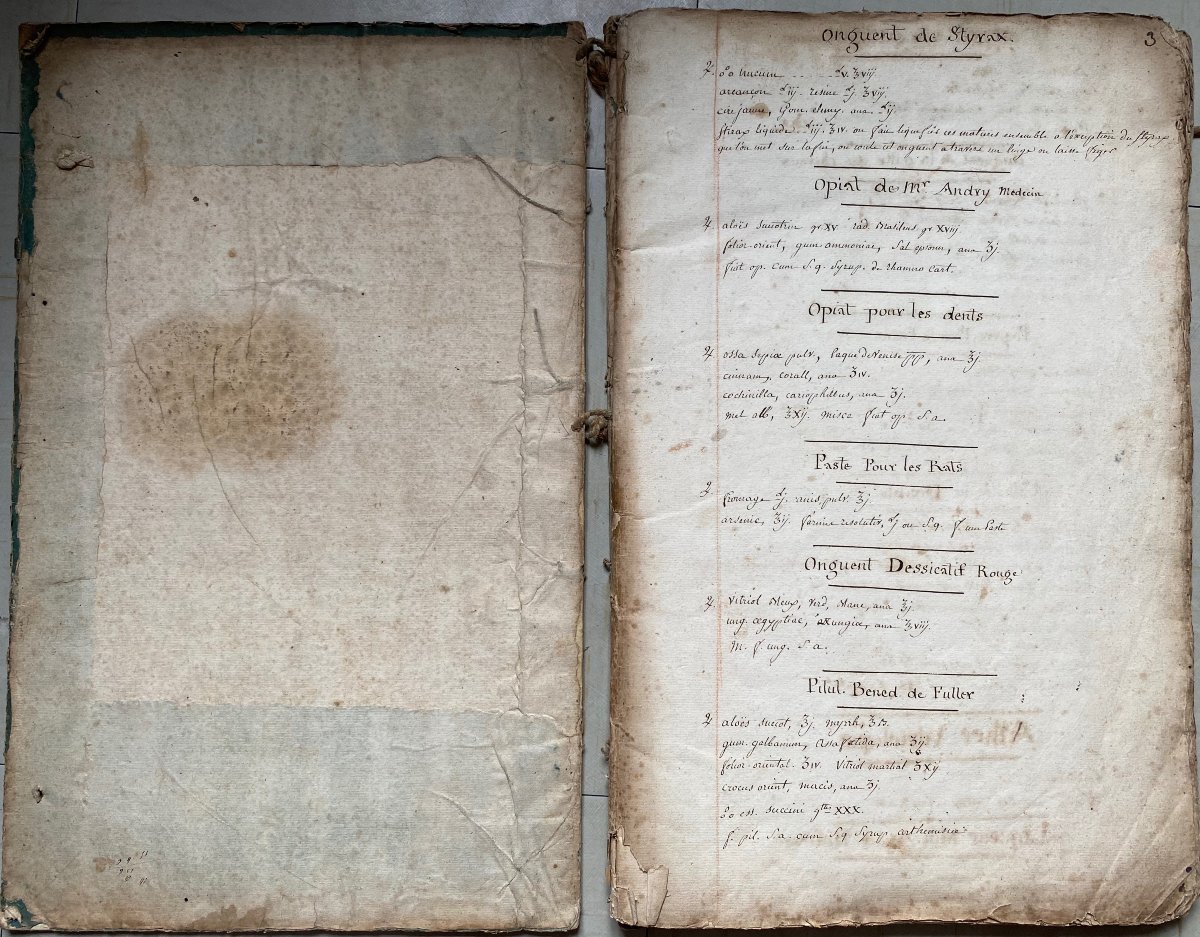 3
Onguent de Styrax.
℞ nucum ʒvij.
arcançon ij. resine j. ʒvij.
cire jaune, Gom. elemy. ana ij.
Styrax liquide iij. ʒiv. on fait liquefier ces matieres ensemble a l'exception du styrax
qu'on met sur la fin, on coule cet onguent a travers un linge on laisse figer
Opiat de Mr. Andry Medecin
℞ aloës succotrin gr XV rad. gr XVIIj.
folior. orient, gum ammoniac, Sal epsom, ana ʒj.
fiat op. cum S. q. Syrup. de rhamno Cart.
Opiat pour les dents
℞ ossa sepiæ pulv, laque de Venise pp, ana ʒj
cinnam, corall, ana ʒiv.
cochinilla, cariophillus, ana ʒj.
mel alb, ʒXij. misce fiat op. S. a.
Paste Pour les Rats
℞ fromage j. anis pulv. ʒj.
arsenic, ʒij. farine resolutiv, j ou S. q. f. une Paste
Onguent Dessicatif Rouge
℞ Vitriol bleux, Verd, blanc, ana ʒj.
ung. ægyptiac, axungiæ, ana ʒviij.
M. f. ung. S. a.
Pilul. Bened de Fuller
℞ aloës succot, ʒj. myrrh, ʒß.
gum. galbanum, assa fœtida, ana ʒij.
folior oriental. ʒiv. Vitriol martial ʒXij.
crocus orient, macis, ana ʒj.
ess. succini gttes XXX.
f. pil. S. a. cum S. q Syrup. arthemisiæ